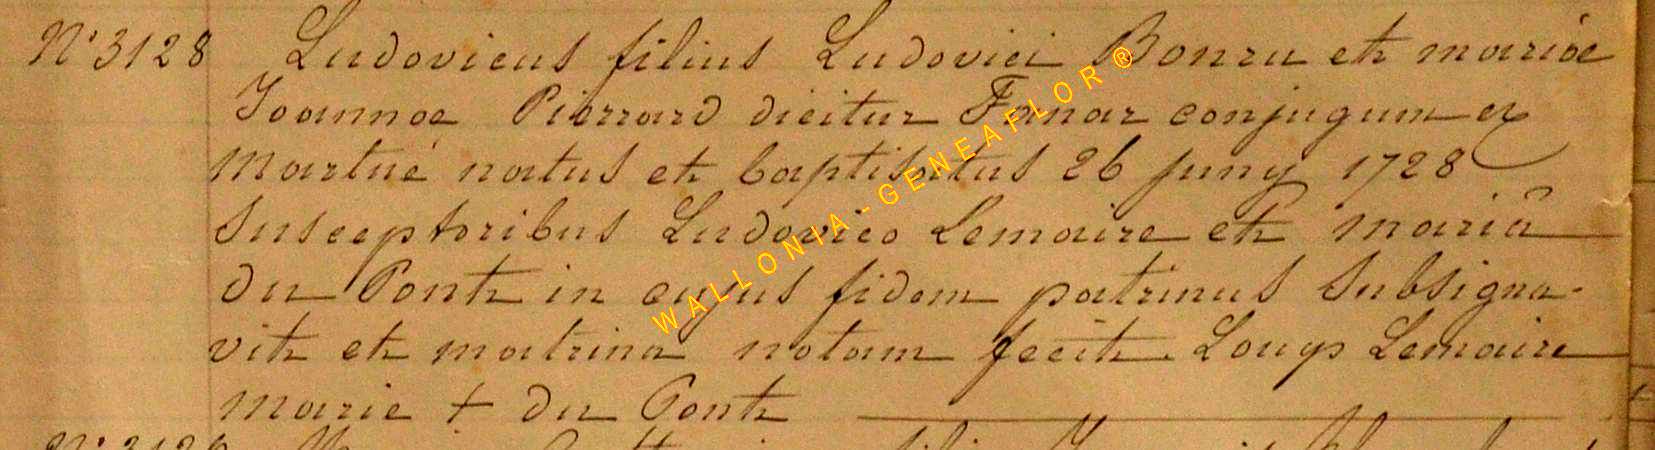 N° 3128 Ludovicus filius Ludovici Bonru et mariæ
Joannæ Pierrard dicitur Fanar conjugum ex
Martué natus et baptisatus 26 juny 1728
Susceptoribus Ludovico Lemaire et mariâ
du Pont in cujus fidem patrinus Subsigna-
vit et matrina notam fecit. Louys Lemaire
marie + du Pont
N° 3129
WALLONIA-GENEAFLOR®